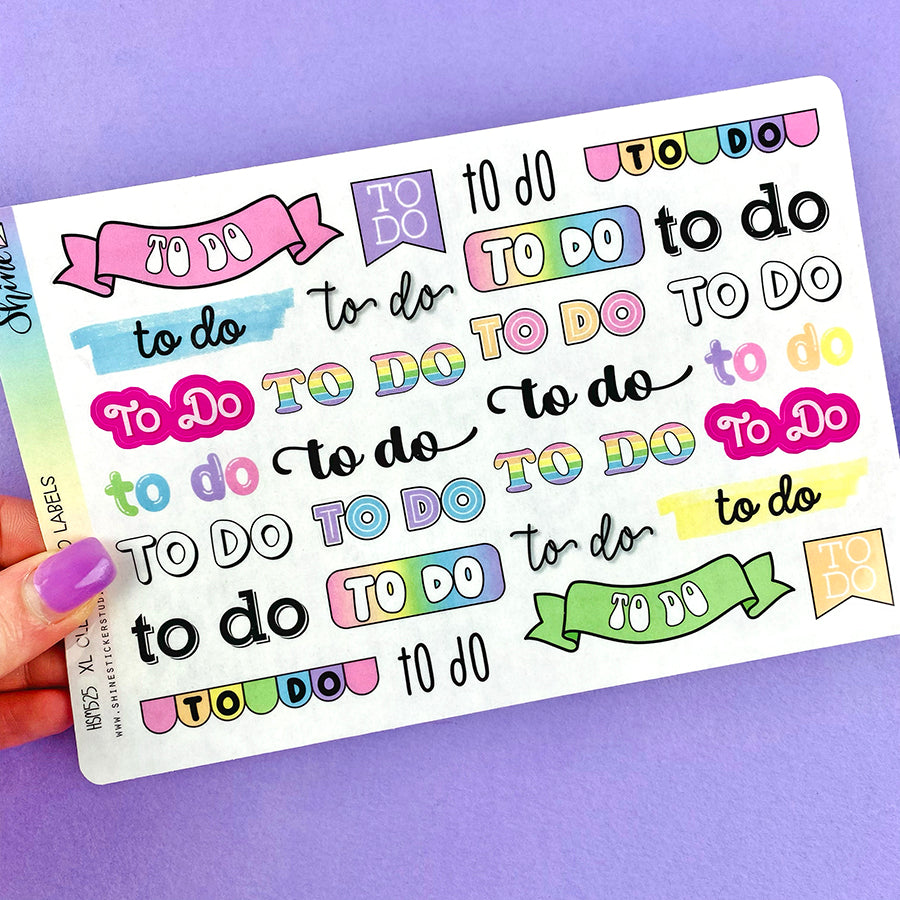 Shine
TO DO
TO
DO
to do
TO DO
to do
to do
TO DO
to do
To Do
TO DO
TO DO
TO DO
to do
to do
to do
to do
TO DO
To Do
TO DO
TO DO
to do
to do
to do
TO DO
TO DO
TO
DO
TO DO
to do
HSM525 XL LABELS
WWW.SHINESTICKERSTUD